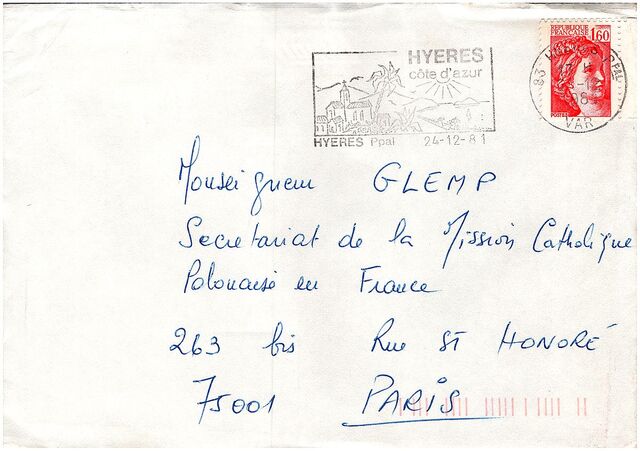 HYERES
côte d'azur
HYERES Ppal 24-12-81
REPUBLIQUE FRANCAISE 1,60
POSTES
83
VAR
Monseigneur GLEMP
Secretariat de la Mission Catholique
Polonaise en France
263 bis Rue St HONORÉ
75001 PARIS